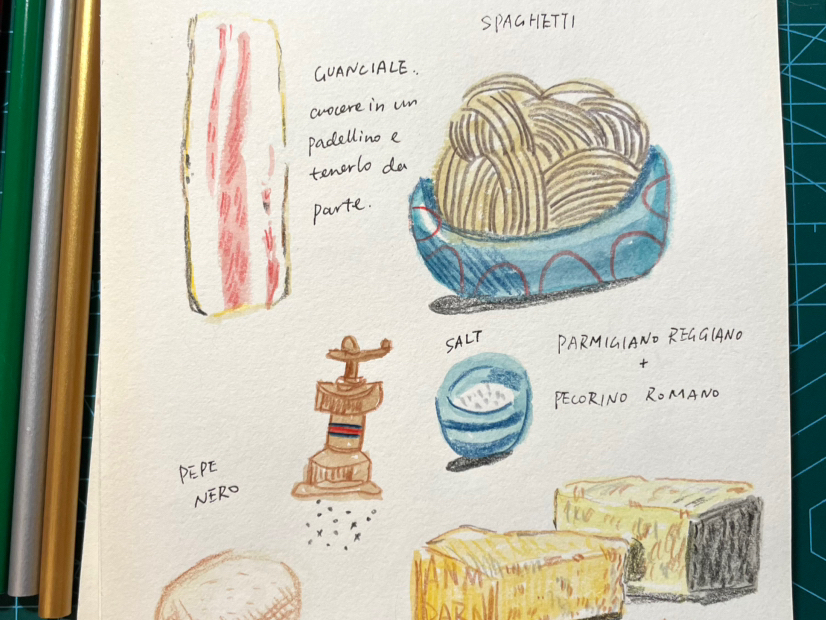 SPAGHETTI
GUANCIALE..
cuocere in un
padellino e
tenerlo da
parte.
SALT
PARMIGIANO REGGIANO
+
PECORINO ROMANO
PEPE
NERO